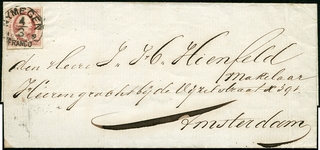 NYMEGEN
4
FRANCO
den Heere J. H. Hienfeld
Makelaar
Heerengracht bij de Vijzelstraat
Amsterdam